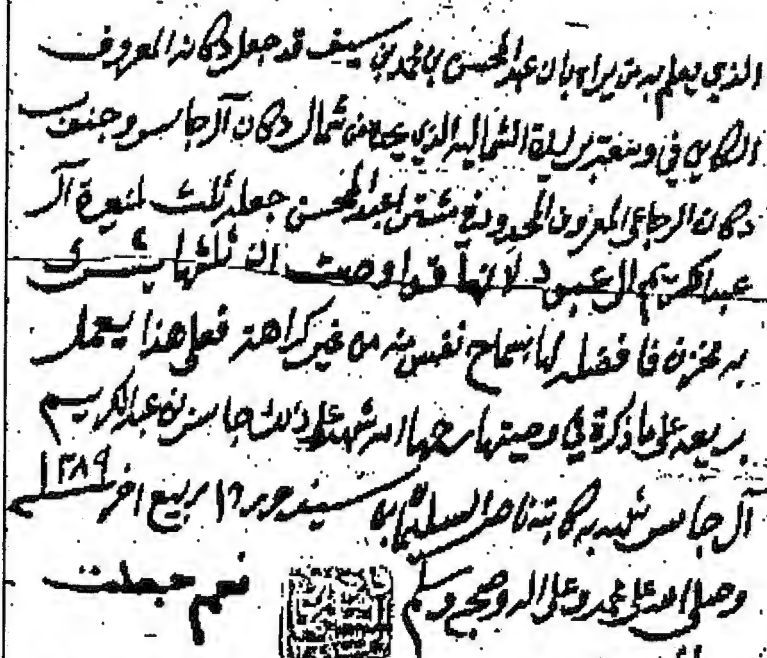 الذي يعلم به من يراه بان عبدالمحسن بن محمد بن سيف قد جعل دكانه المعروف
الكاين في وسعة بريدة الشمالية الذي يحده من شمال دكان آل جاسر وجنوب
دكان الرجاعي المعروف المحدود عبدالمحسن جعله ثلث لنعيرة آل
عبدالكريم ال عبود لانها قد اوصت ان ثلثها يشرك
به مخزن فا فضله لها بسماح نفس منه من غير كراهة فعلى هذا يعمل
بريعه على ما ذكرة في وصيتها رحمها الله شهد على ذلك جاسر بن عبدالكريم
آل جاسر شهد به كاتبه ناصر السليمان بن سيف حرر ١٥ ربيع اخر ١٣٨٩
وصلى الله على محمد وعلى اله وصحبه وسلم
نعم جعلت